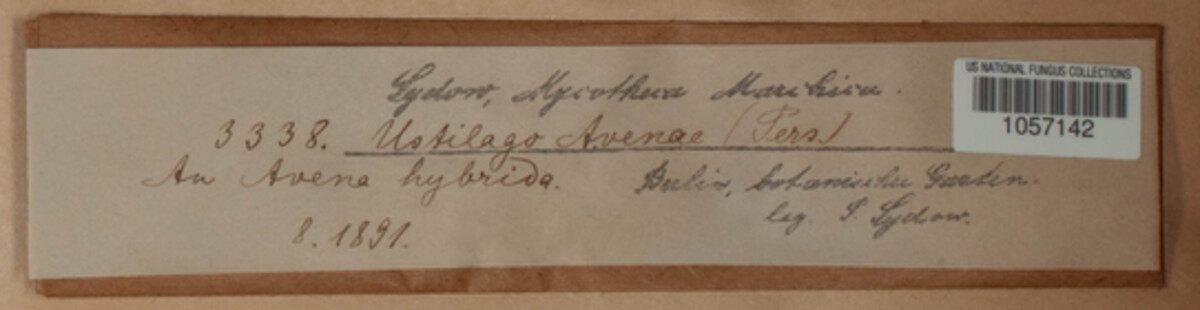 Sydow, Mycotheca Marchica.
US NATIONAL FUNGUS COLLECTIONS
1057142
3338. Ustilago Avenae (Pers.)
An Avena hybrida. Berlin, botanischer Garten.
8. 1891. leg. P. Sydow.